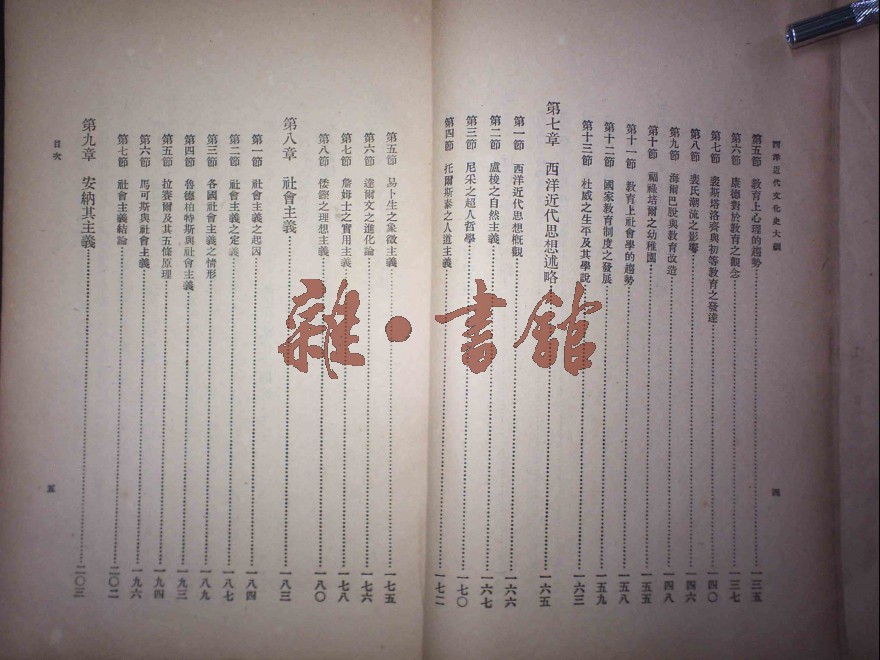 西洋近代文化史大綱
第五節 教育上心理的趨勢 一三五
第六節 康德對於教育之觀念 一三七
第七節 裴斯塔洛齊與初等教育之發達 一四〇
第八節 裴氏潮流之影響 一四六
第九節 海爾巴脫與教育改造 一四八
第十節 福祿培爾之幼稚園 一五五
第十一節 教育上社會學的趨勢 一五八
第十二節 國家教育制度之發展 一五九
第十三節 杜威之生平及其學說 一六三
第七章 西洋近代思想述略 一六五
第一節 西洋近代思想概觀 一六六
第二節 盧梭之自然主義 一六七
第三節 尼采之超人哲學 一七〇
第四節 托爾斯泰之人道主義 一七二
四
第五節 易卜生之象徵主義 一七五
第六節 達爾文之進化論 一七六
第七節 詹姆士之實用主義 一七八
第八節 倭鏗之理想主義 一八〇
第八章 社會主義 一八三
第一節 社會主義之起因 一八四
第二節 社會主義之定義 一八七
第三節 各國社會主義之情形 一八九
第四節 魯德柏特斯與社會主義 一九三
第五節 拉賽爾及其五條原理 一九四
第六節 馬可斯與社會主義 一九六
第七節 社會主義結論 二〇二
第九章 安納其主義 二〇三
目次
五
雜·書館